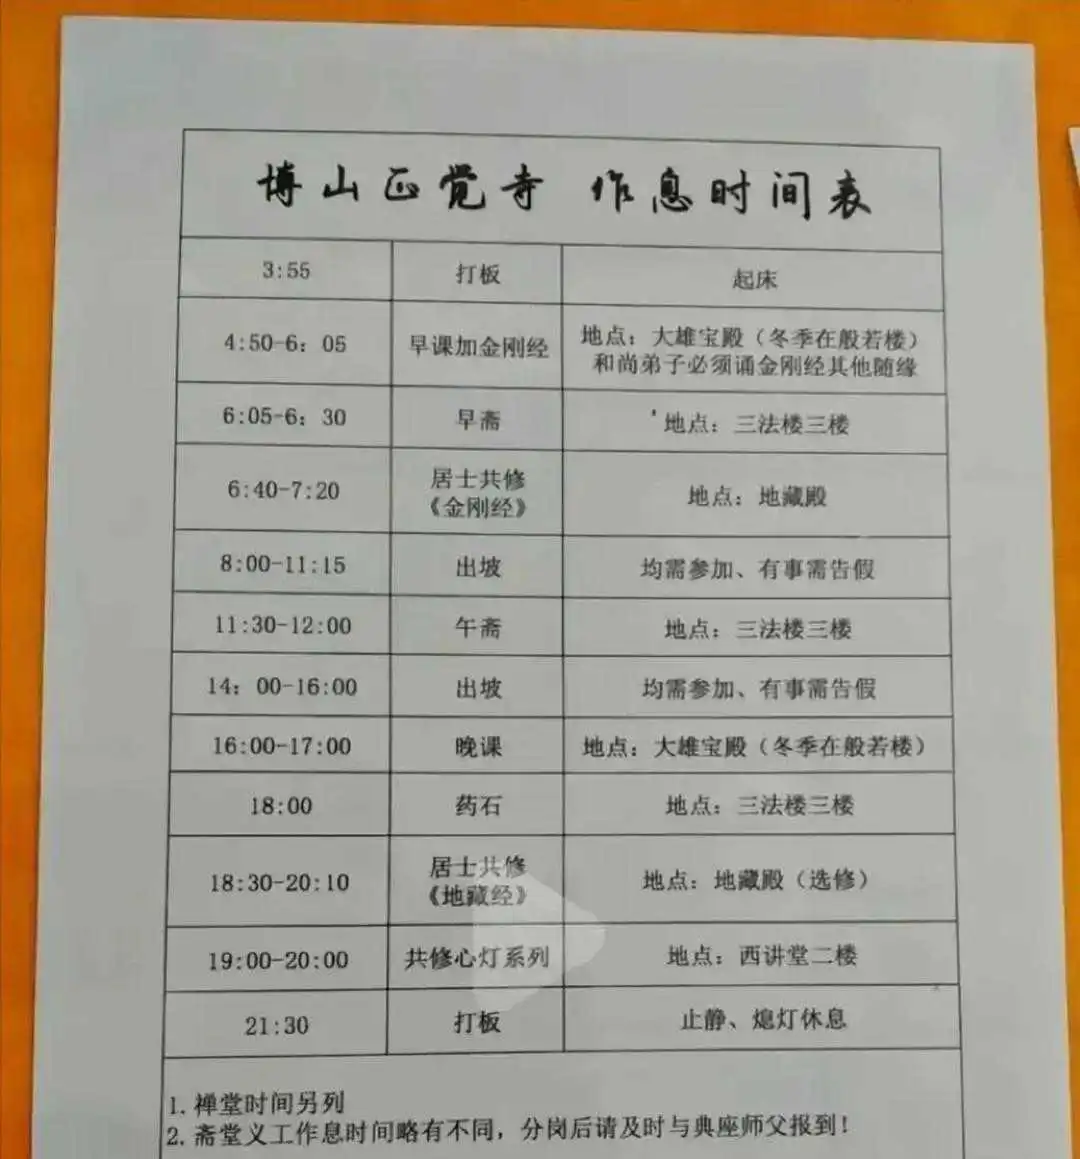 博山正觉寺 作息时间表
3:55 打板 起床
4:50-6：05 早课加金刚经 地点：大雄宝殿（冬季在般若楼）
和尚弟子必须诵金刚经其他随缘
6:05-6：30 早斋 地点：三法楼三楼
6:40-7:20 居士共修 地点：地藏殿
《金刚经》
8:00-11:15 出坡 均需参加、有事需告假
11:30-12:00 午斋 地点：三法楼三楼
14：00-16:00 出坡 均需参加、有事需告假
16:00-17:00 晚课 地点：大雄宝殿（冬季在般若楼）
18:00 药石 地点：三法楼三楼
18:30-20:10 居士共修 地点：地藏殿（选修）
《地藏经》
19:00-20:00 共修心灯系列 地点：西讲堂二楼
21:30 打板 止静、熄灯休息
1. 禅堂时间另列
2. 斋堂义工作息时间略有不同，分岗后请及时与典座师父报到！